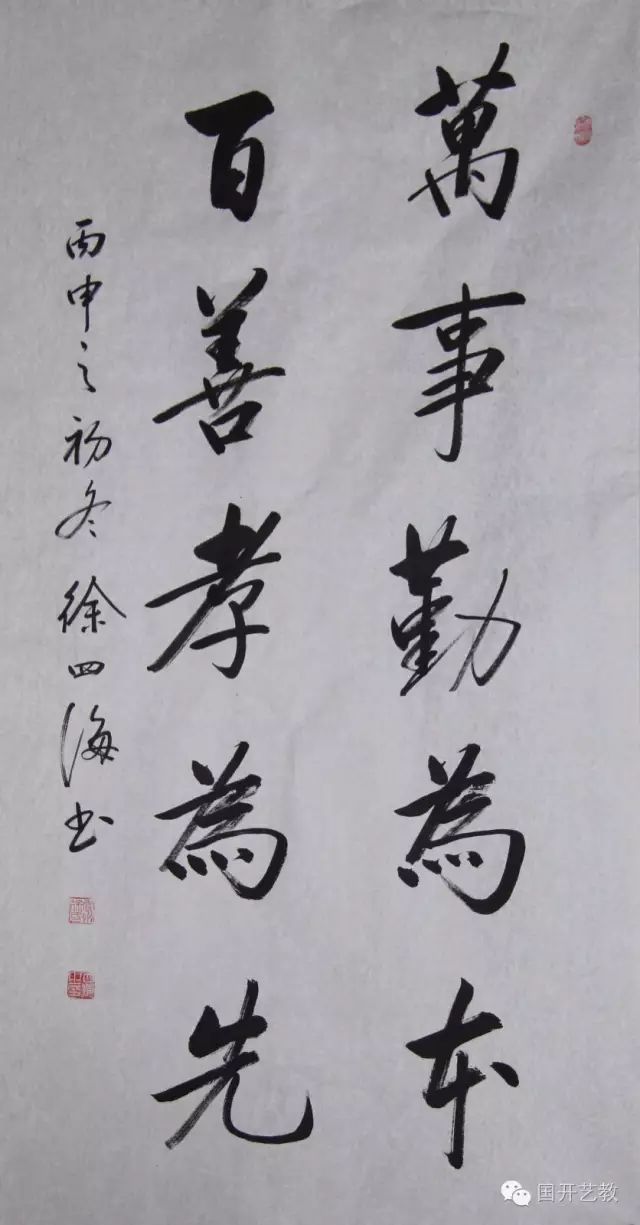 萬事勤為本
百善孝為先
丙申之初冬 徐四海书
国开艺教